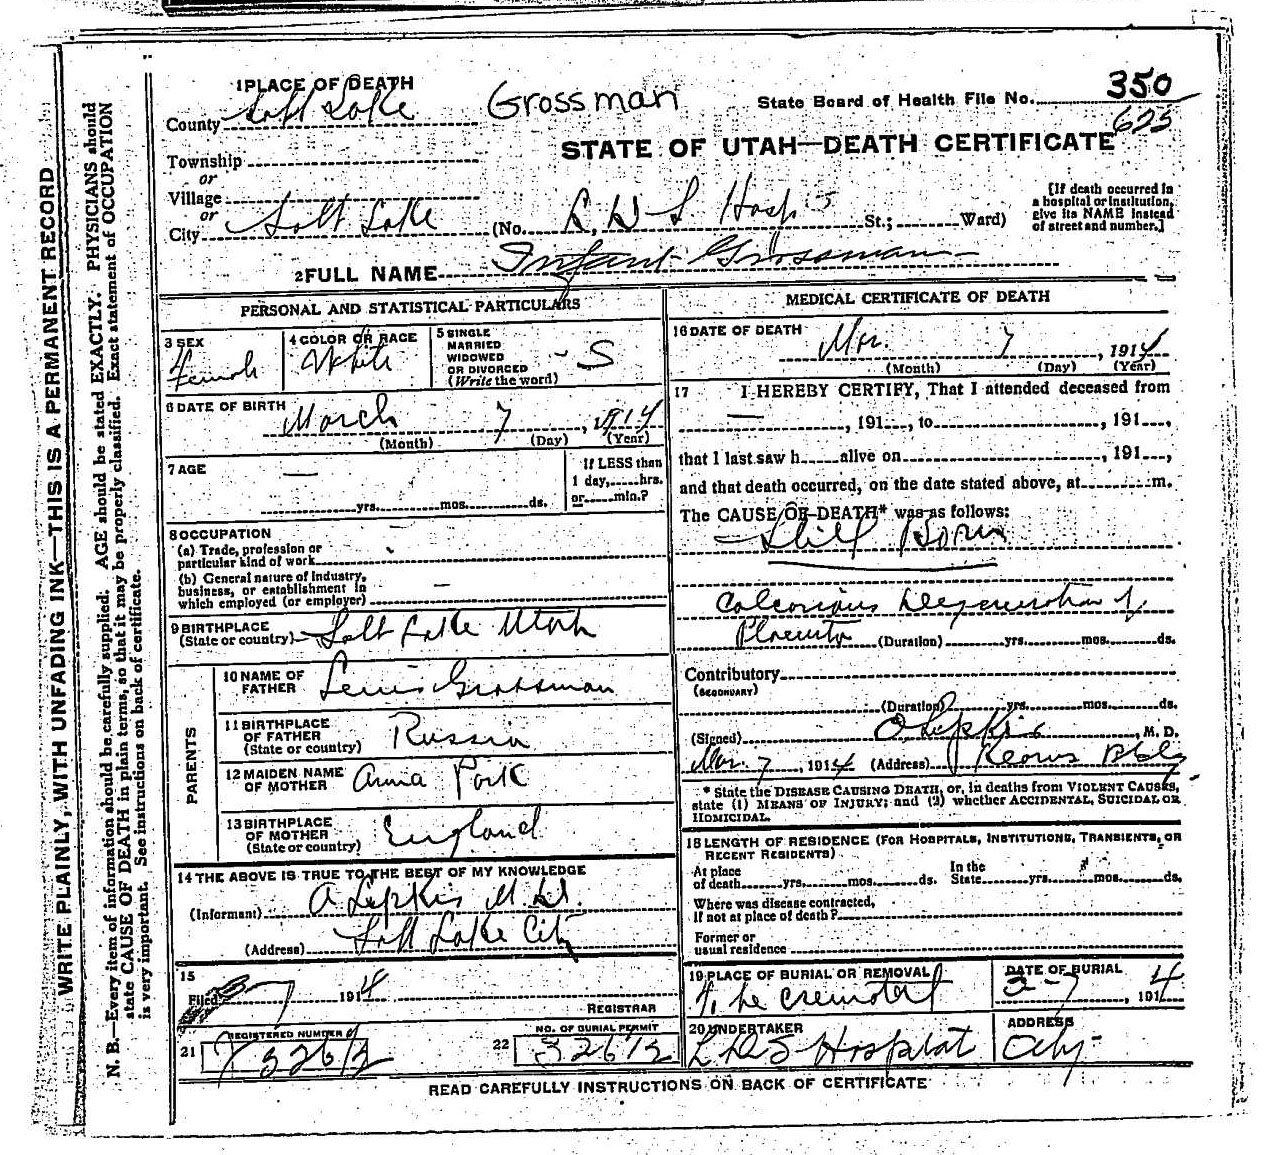 1 PLACE OF DEATH
350
County Salt Lake
Grossman
State Board of Health File No.
625
Township
STATE OF UTAH—DEATH CERTIFICATE
or
Village
or
City Salt Lake (No. L. D. S. Hosp St.; Ward)
[If death occurred in
a hospital or institution,
give its NAME instead
of street and number.]
2 FULL NAME Infant Grossman
PERSONAL AND STATISTICAL PARTICULARS
3 SEX
Female
4 COLOR OR RACE
White
5 SINGLE
MARRIED
WIDOWED
OR DIVORCED
(Write the word)
- S
6 DATE OF BIRTH
March 7, 1914
(Month) (Day) (Year)
7 AGE
yrs. mos. ds.
If LESS than
1 day, hrs.
or min.?
8 OCCUPATION
(a) Trade, profession or
particular kind of work
(b) General nature of industry,
business, or establishment in
which employed (or employer)
9 BIRTHPLACE
(State or country) Salt Lake Utah
PARENTS
10 NAME OF
FATHER
Lewis Grossman
11 BIRTHPLACE
OF FATHER
(State or country)
Russia
12 MAIDEN NAME
OF MOTHER
Anna
13 BIRTHPLACE
OF MOTHER
(State or country)
England
14 THE ABOVE IS TRUE TO THE BEST OF MY KNOWLEDGE
(Informant) A Lipkis M.D.
(Address) Salt Lake City
15
Filed 3 7 1914
REGISTRAR
REGISTERED NUMBER
21
NO. OF BURIAL PERMIT
22 326 1/2
MEDICAL CERTIFICATE OF DEATH
16 DATE OF DEATH
Mar. 7, 1914
(Month) (Day) (Year)
17 I HEREBY CERTIFY, That I attended deceased from
—, 191, to , 191,
that I last saw h alive on , 191,
and that death occurred, on the date stated above, at m.
The CAUSE OF DEATH* was as follows:
Still Born
Calcarious Degeneration of
Placenta (Duration) yrs. mos. ds.
Contributory
(SECONDARY)
(Duration) yrs. mos. ds.
(Signed) Lipkis, M. D.
Mar. 7, 1914 (Address) Kearns Bldg
* State the DISEASE CAUSING DEATH, or, in deaths from VIOLENT CAUSES,
state (1) MEANS OF INJURY; and (2) whether ACCIDENTAL, SUICIDAL OR
HOMICIDAL.
18 LENGTH OF RESIDENCE (FOR HOSPITALS, INSTITUTIONS, TRANSIENTS, OR
RECENT RESIDENTS)
At place
of death yrs. mos. ds.
In the
State yrs. mos. ds.
Where was disease contracted,
if not at place of death?
Former or
usual residence
19 PLACE OF BURIAL OR REMOVAL
To be cremated
DATE OF BURIAL
3-7, 1914
20 UNDERTAKER
LDS Hospital
ADDRESS
City
READ CAREFULLY INSTRUCTIONS ON BACK OF CERTIFICATE
WRITE PLAINLY, WITH UNFADING INK—THIS IS A PERMANENT RECORD
N. B.—Every item of information should be carefully supplied. AGE should be stated EXACTLY. PHYSICIANS should
state CAUSE OF DEATH in plain terms, so that it may be properly classified. Exact statement of OCCUPATION
is very important. See instructions on back of certificate.